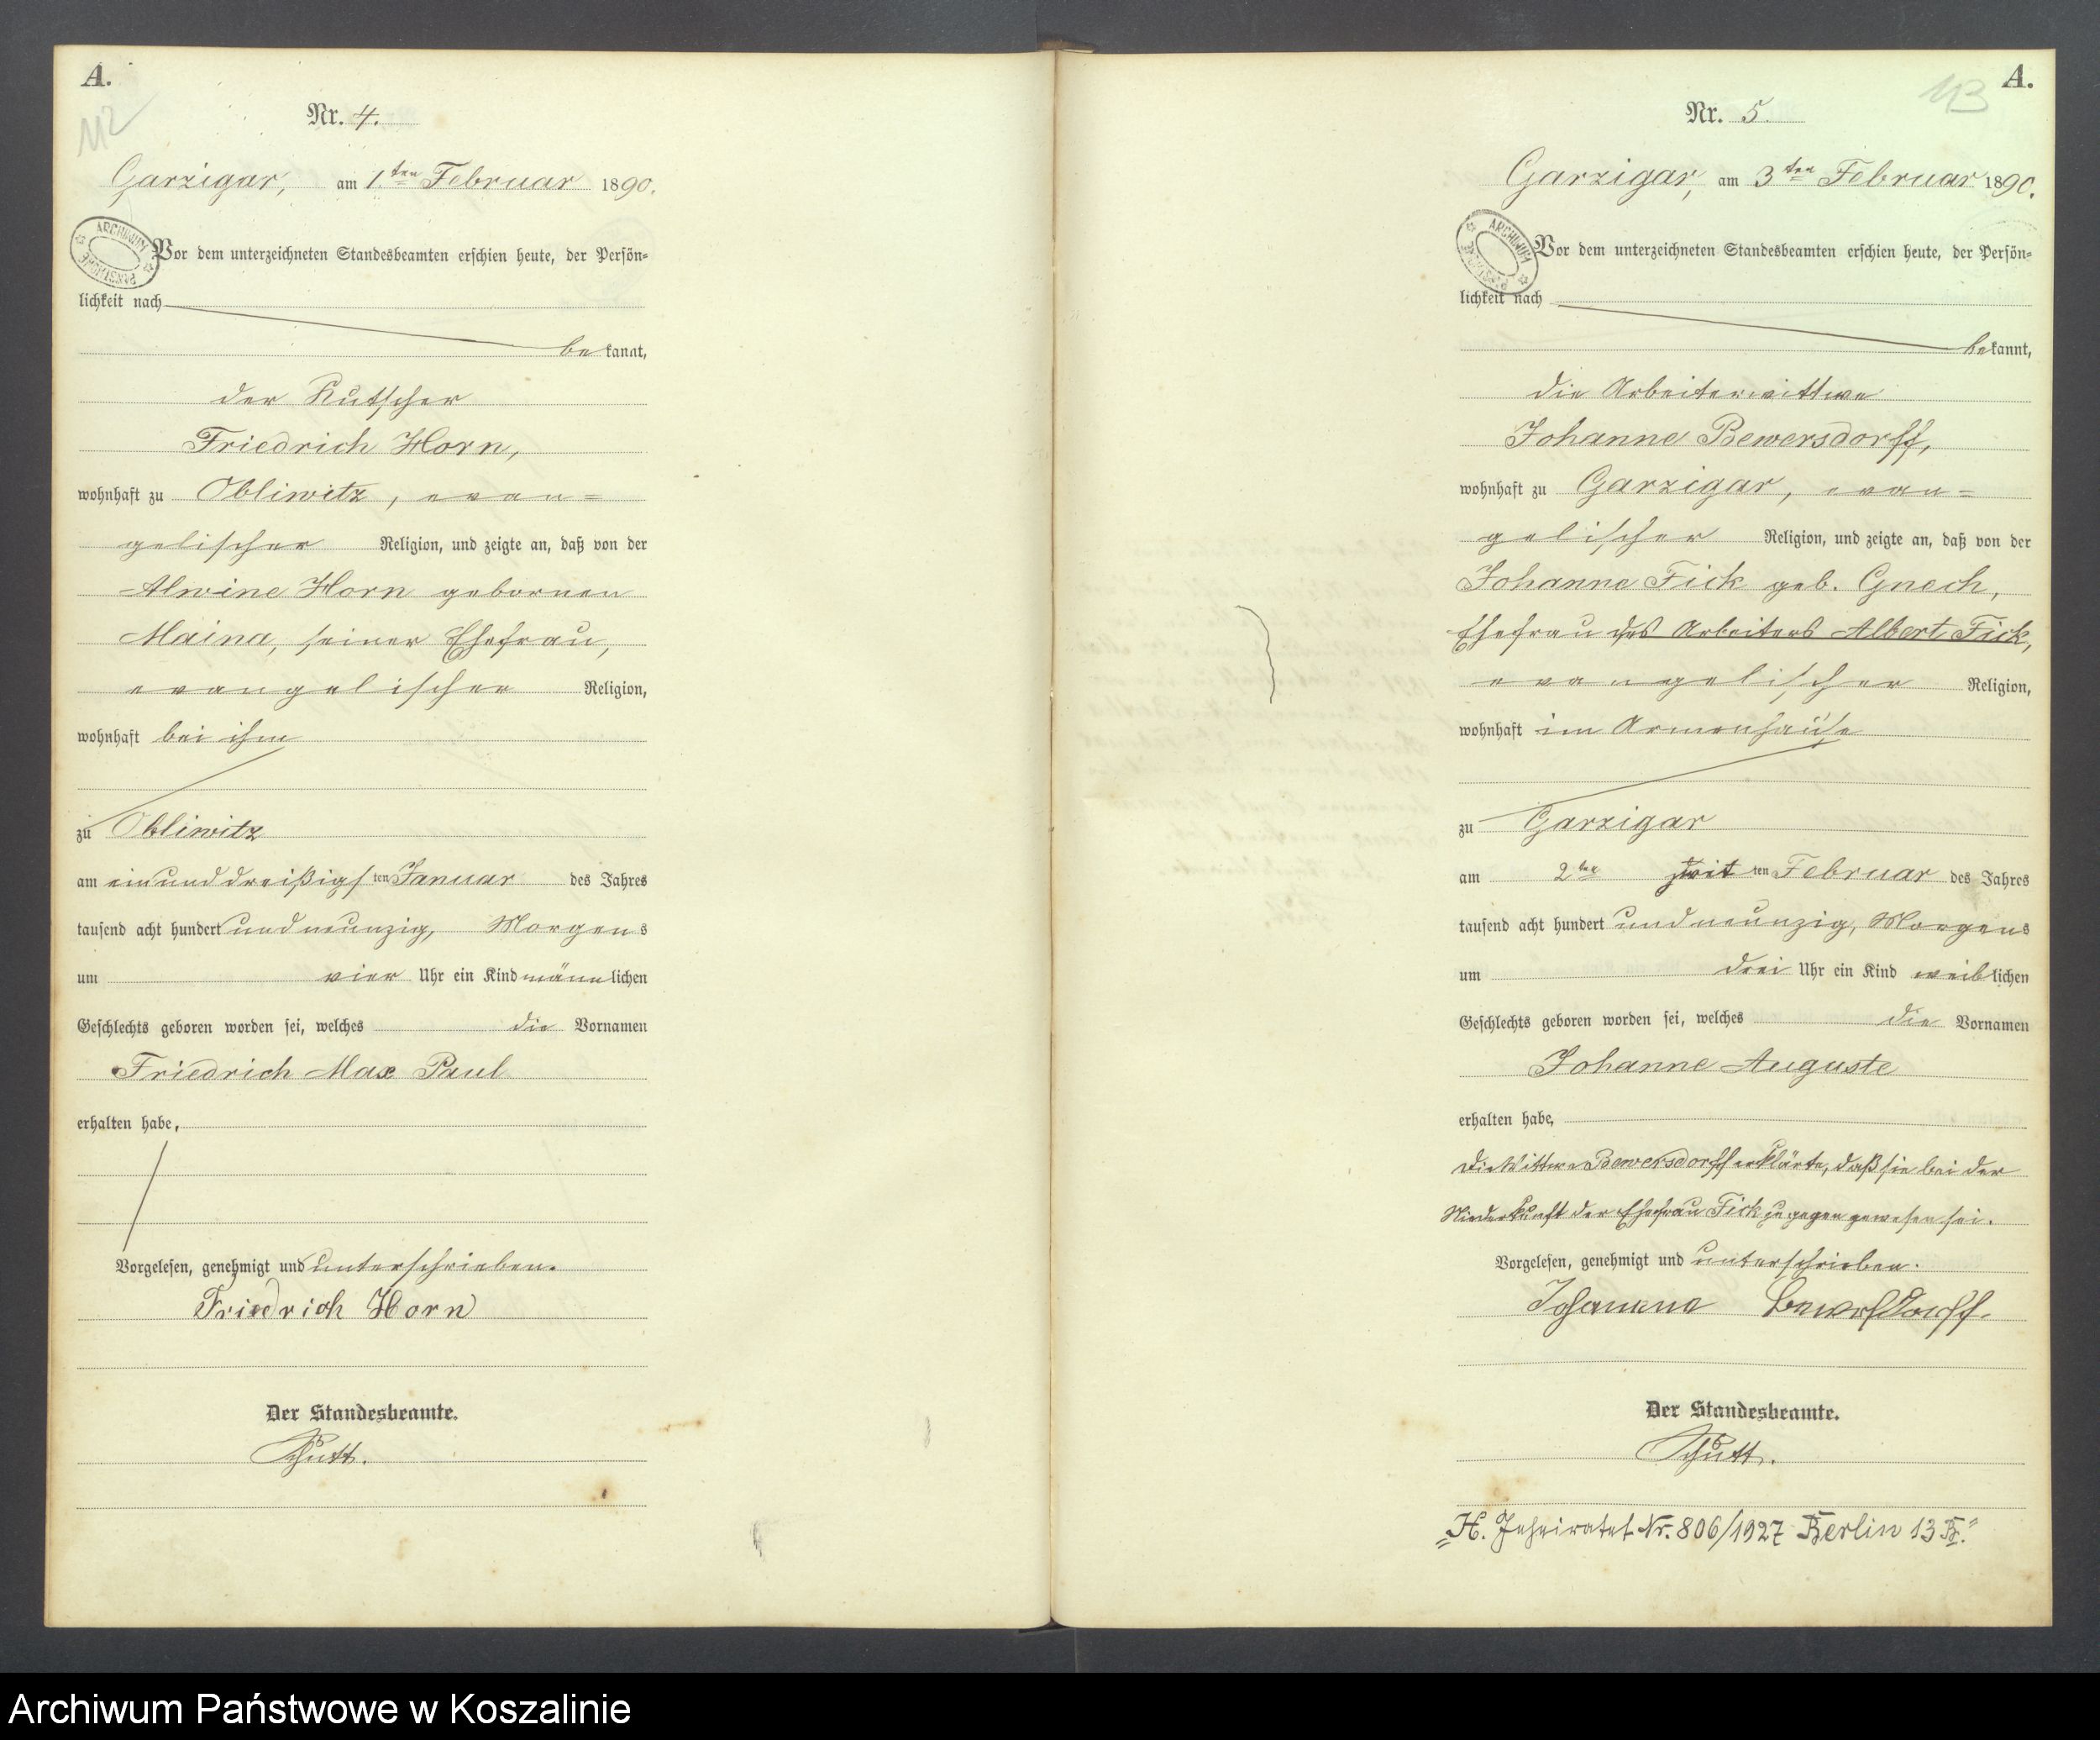 A.
112
Nr. 4.
Garzigar, am 1.ten Februar 1890.
ARCHIWUM PAŃSTWOWE
Vor dem unterzeichneten Standesbeamten erschien heute, der Persön=
lichkeit nach
bekannt,
der Kutscher
Friedrich Horn,
wohnhaft zu Obliwitz, evan=
gelischer Religion, und zeigte an, daß von der
Alwine Horn gebornen
Maina, seiner Ehefrau,
evangelischer Religion,
wohnhaft bei ihm
zu Obliwitz
am einunddreißigsten Januar des Jahres
tausend acht hundert und neunzig, Morgens
um vier Uhr ein Kind männlichen
Geschlechts geboren worden sei, welches die Vornamen
Friedrich Max Paul
erhalten habe,
Vorgelesen, genehmigt und unterschrieben.
Friedrich Horn
Der Standesbeamte.
A.
113
Nr. 5.
Garzigar, am 3ten Februar 1890.
ARCHIWUM PAŃSTWOWE
Vor dem unterzeichneten Standesbeamten erschien heute, der Persön=
lichkeit nach
bekannt,
die Arbeiterwittwe
Johanne Bewersdorff,
wohnhaft zu Garzigar, evan=
gelischer Religion, und zeigte an, daß von der
Johanne Fick geb. Gnech,
Ehefrau des Arbeiters Albert Fick,
evangelischer Religion,
wohnhaft im Armenhause
zu Garzigar
am 2ten zweiten Februar des Jahres
tausend acht hundert und neunzig, Morgens
um drei Uhr ein Kind weiblichen
Geschlechts geboren worden sei, welches die Vornamen
Johanne Auguste
erhalten habe,
Die Wittwe Bewersdorff erklärte, daß sie bei der
Niederkunft der Ehefrau Fick zugegen gewesen sei.
Vorgelesen, genehmigt und unterschrieben.
Johanna Bewersdorff.
Der Standesbeamte.
Nr. 806/1927 Berlin 13
Archiwum Państwowe w Koszalinie